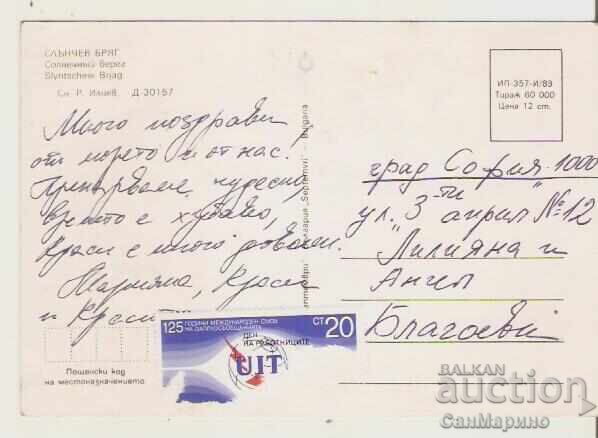 СЛЪНЧЕВ БРЯГ
Солнечный берег
Slyntschew Brjag
Сн. Р. Илиев. Д-30157
Много поздрави
от морето и от нас.
Прекарваме чудесно,
времето е хубаво,
Краси е много доволен.
Марияна, Краси
и
 България „Septemvri" — Bulgaria
ИП-357-И/89
Тираж 60 000
Цена 12 ст.
град София 1000
ул. „3-ти април" №12
Лилияна и
Ангел
Благоеви
125 ГОДИНИ МЕЖДУНАРОДЕН СЪЮЗ
НА ДАЛЕКОСЪОБЩЕНИЯТА
СТ 20
ДЕН
НА РАБОТНИЦИТЕ
UIT
Пощенски код
на местоназначението
BALKAN
auction
СанМарино